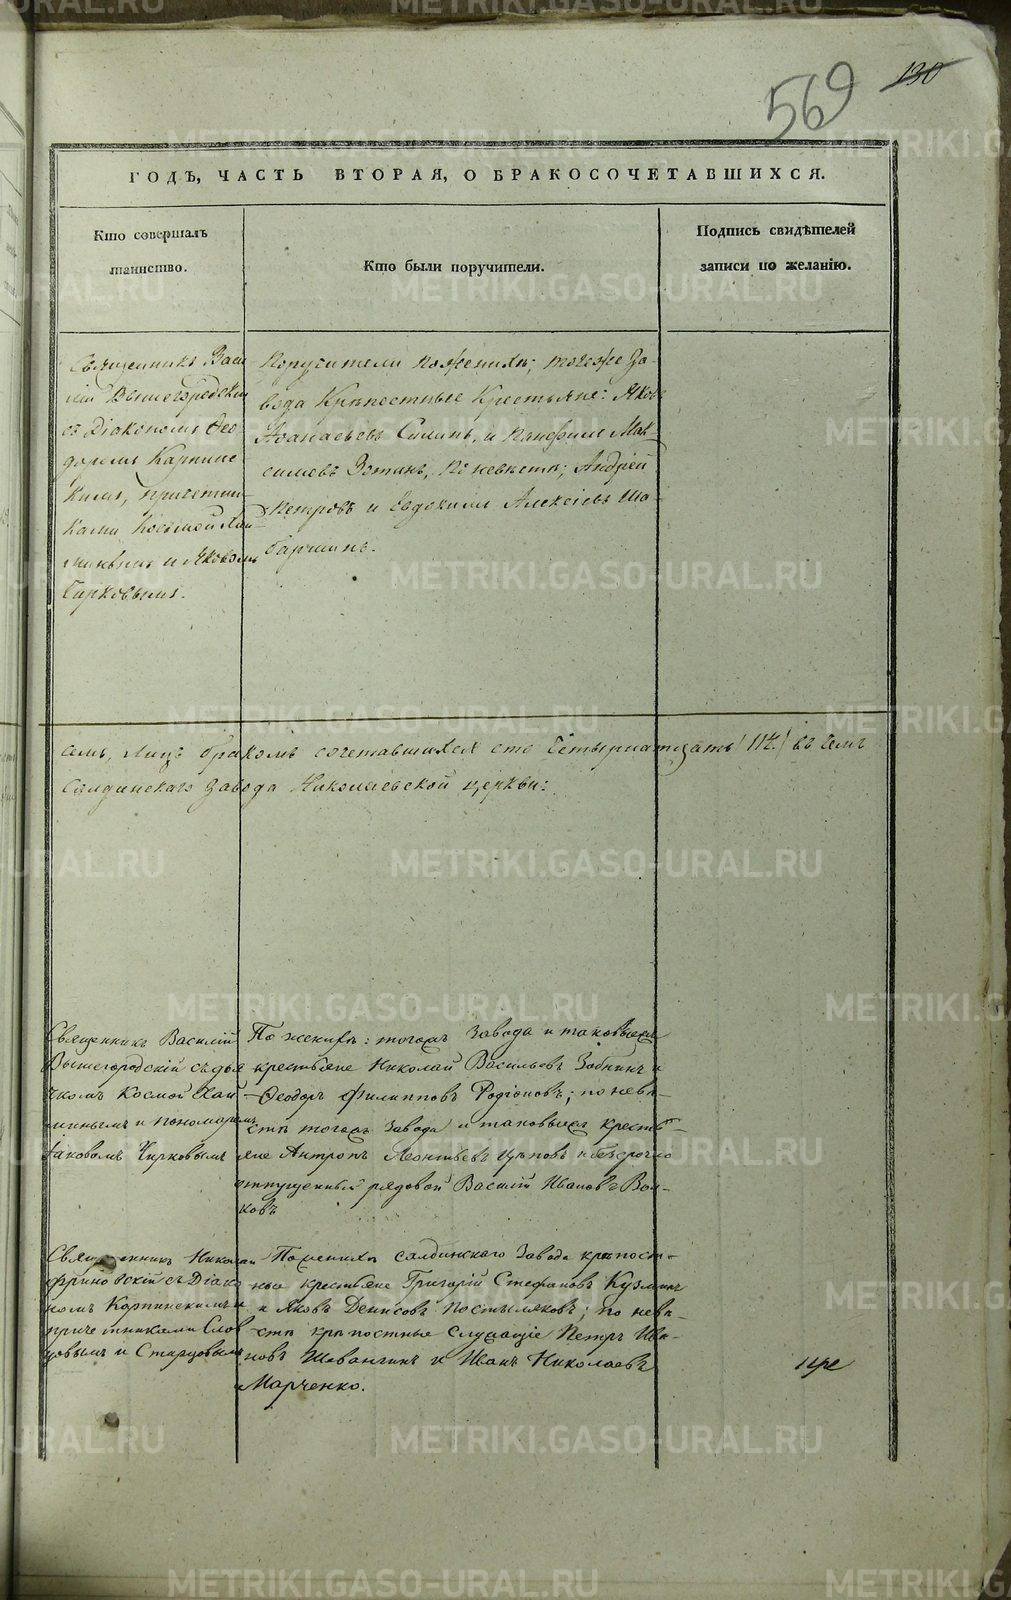 569 130
ГОДЪ, ЧАСТЬ ВТОРАЯ, О БРАКОСОЧЕТАВШИХСЯ.
Кто совершалъ
таинство.
Кто были поручители.
Подпись свидѣтелей
записи по желанію.
Священникъ Васи
лій Вышегородскій
съ Діакономъ Ѳео
доромъ Карпинс
кимъ, причетни
ками Космой Хай
минымъ и Яковомъ
Чирковымъ.
Поручители по женихѣ; тогоже За-
вода Крѣпостные Крестьяне: Яковъ
Аѳанасьевъ Силинъ, и Панфилъ Мак
симовъ Устинъ, по невѣстѣ; Андрей
Петровъ и Евдокимъ Алексѣевъ Ша-
баршинъ.
семъ, Лицъ бракомъ сочетавшихся сто Четырнатцать (114.) въ семъ
Салдинскаго Завода Николаевской церкви:
Священникъ Василій
Вышегородскій съ дья
чкомъ Космой Хай
минымъ и пономаремъ
Іаковомъ Чирковымъ
По женихѣ: тогожъ Завода и таковыежъ
крестьяне Николай Васильевъ Забнинъ и
Ѳеодоръ Филипповъ Родіоновъ; по невѣ-
стѣ тогожъ Завода и таковыежъ крестья-
яне Антропъ Леонтьевъ и безсрочно
отпущенный рядовой Василій Ивановъ Вол-
ковъ
Священникъ Николай
Фриновскій съ Діако
номъ Карпинскимъ и
причетниками Слов
цовымъ и Старцовымъ
По женихѣ салдинскаго Завода крѣпост-
ные крестьяне Григорій Стефановъ Кузминъ
и Яковъ Денисовъ Постыляковъ; по невѣ-
стѣ крѣпостные служащіе Петръ Ива-
новъ Шевангинъ и Иванъ Николаевъ
Марченко.
METRIKI.GASO-URAL.RU